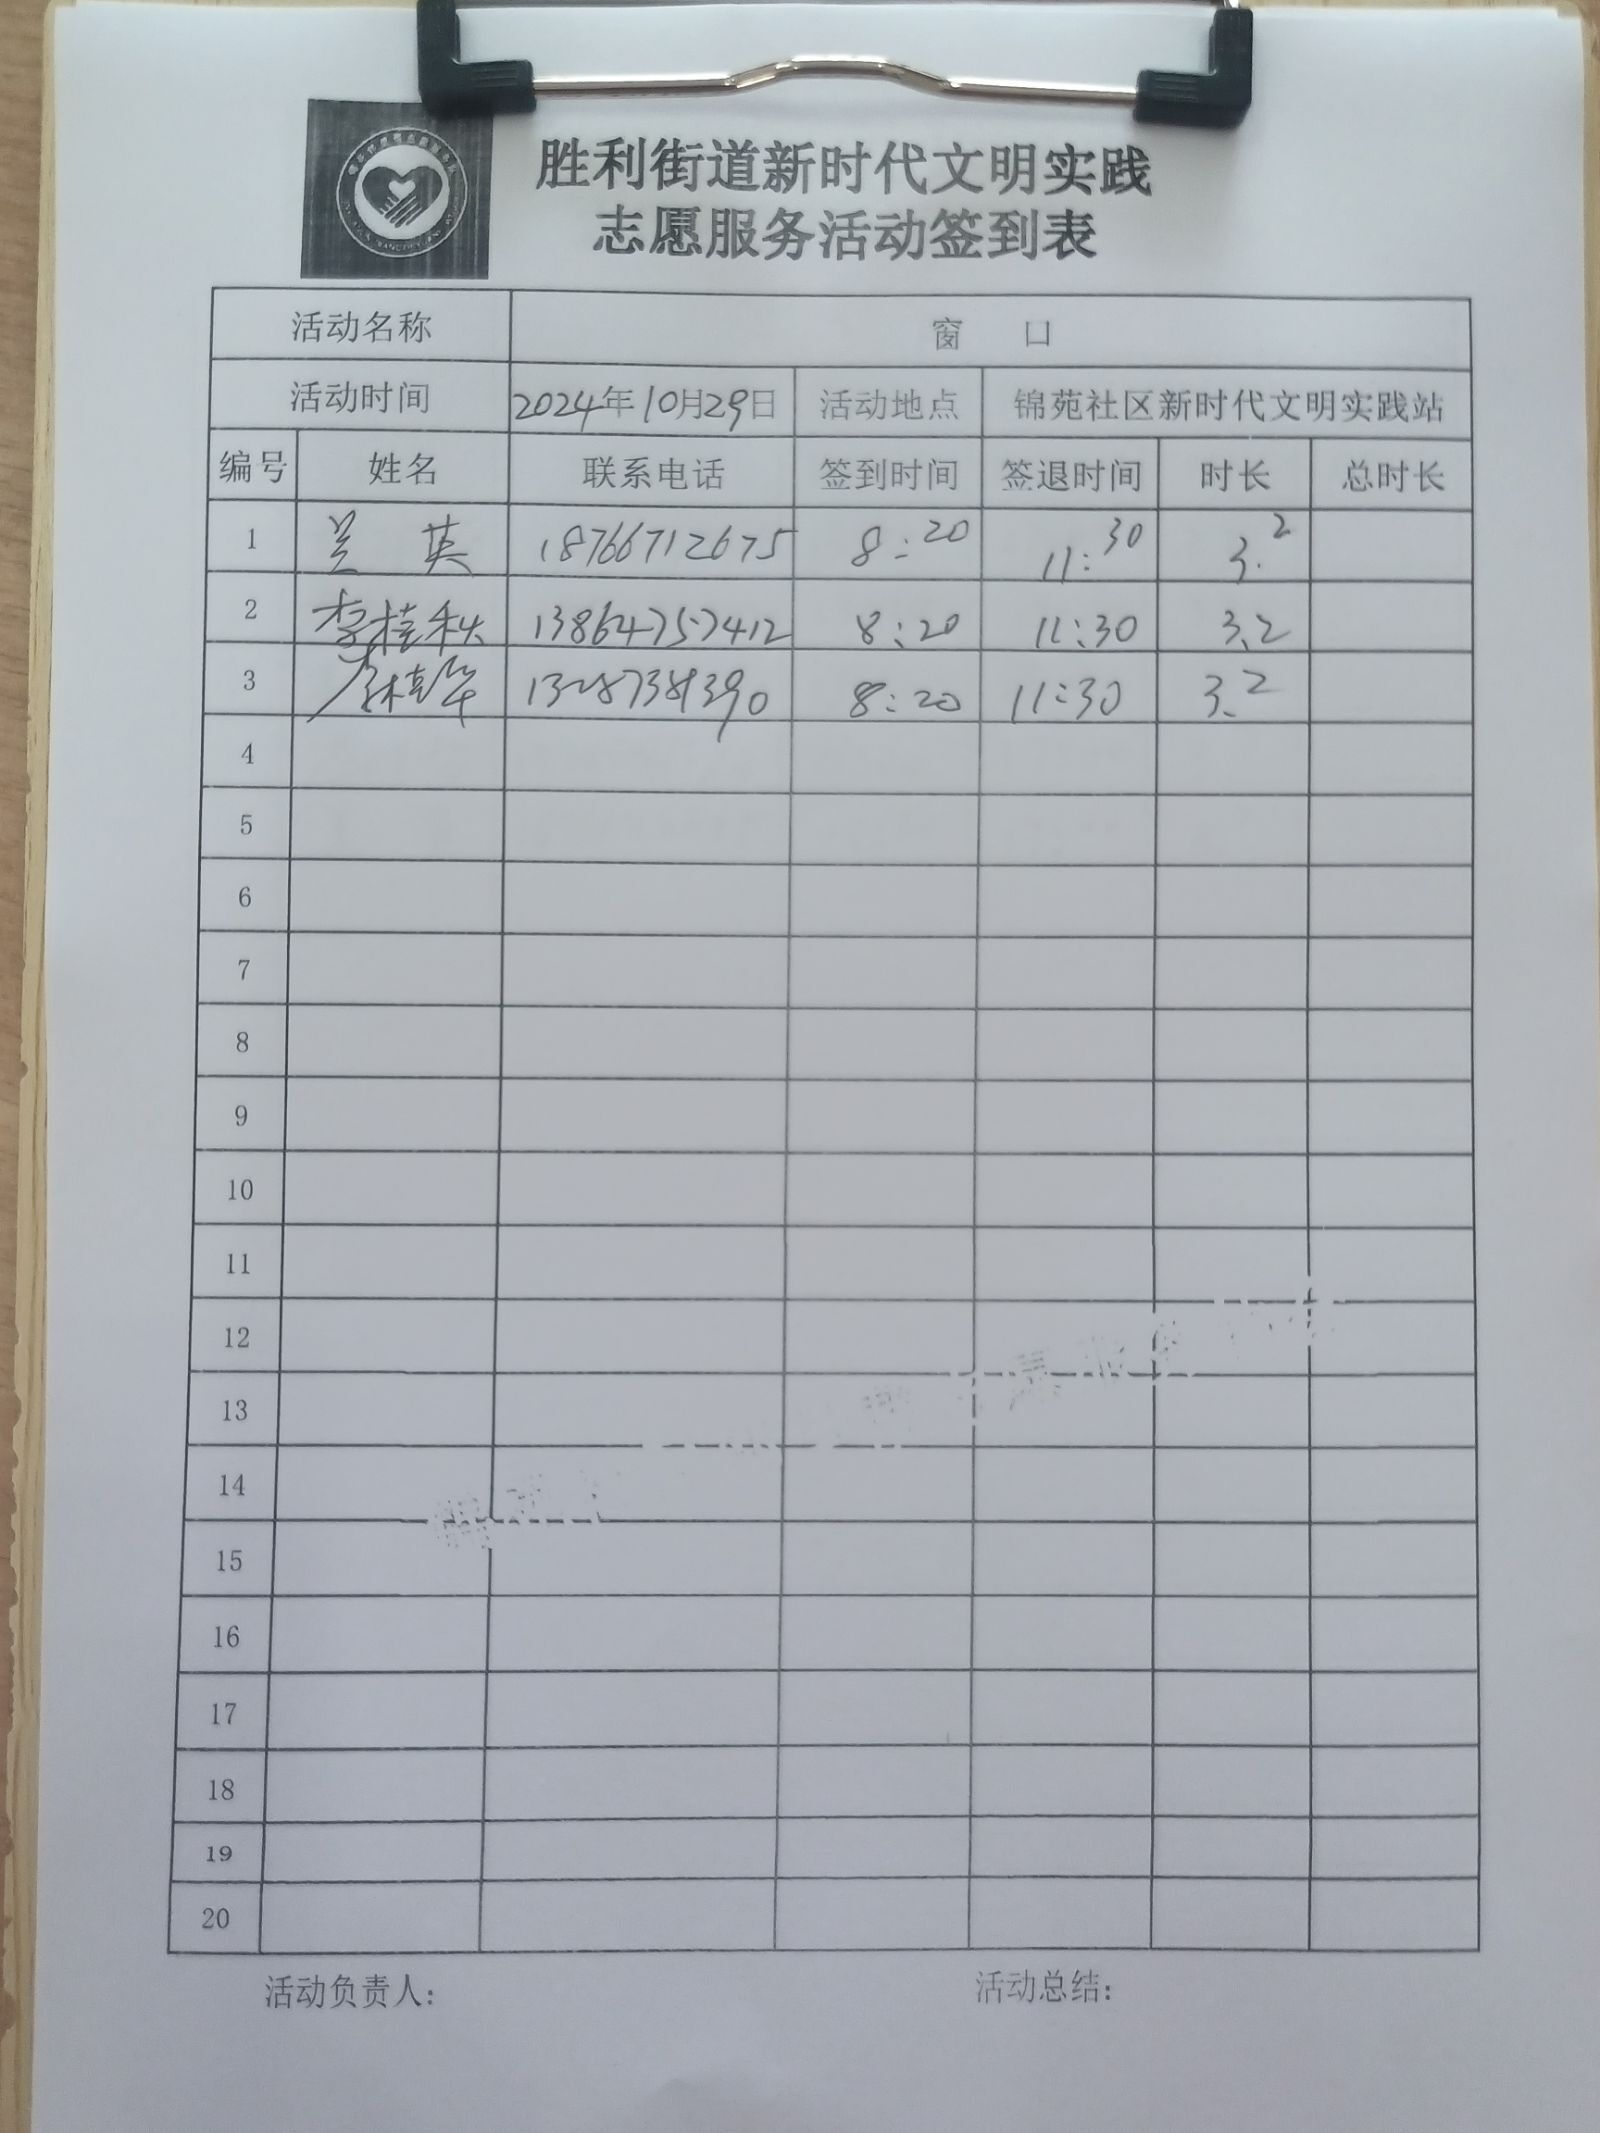 胜利街道新时代文明实践
志愿服务活动签到表
活动名称 窗 口
活动时间 2024年10月29日 活动地点 锦苑社区新时代文明实践站
编号 姓名 联系电话 签到时间 签退时间 时长 总时长
1 兰英 18766712675 8:20 11:30 3.2
2 李桂秋 13864757412 8:20 11:30 3.2
3 13287381390 8:20 11:30 3.2
4
5
6
7
8
9
10
11
12
13
14
15
16
17
18
19
20
活动负责人: 活动总结: